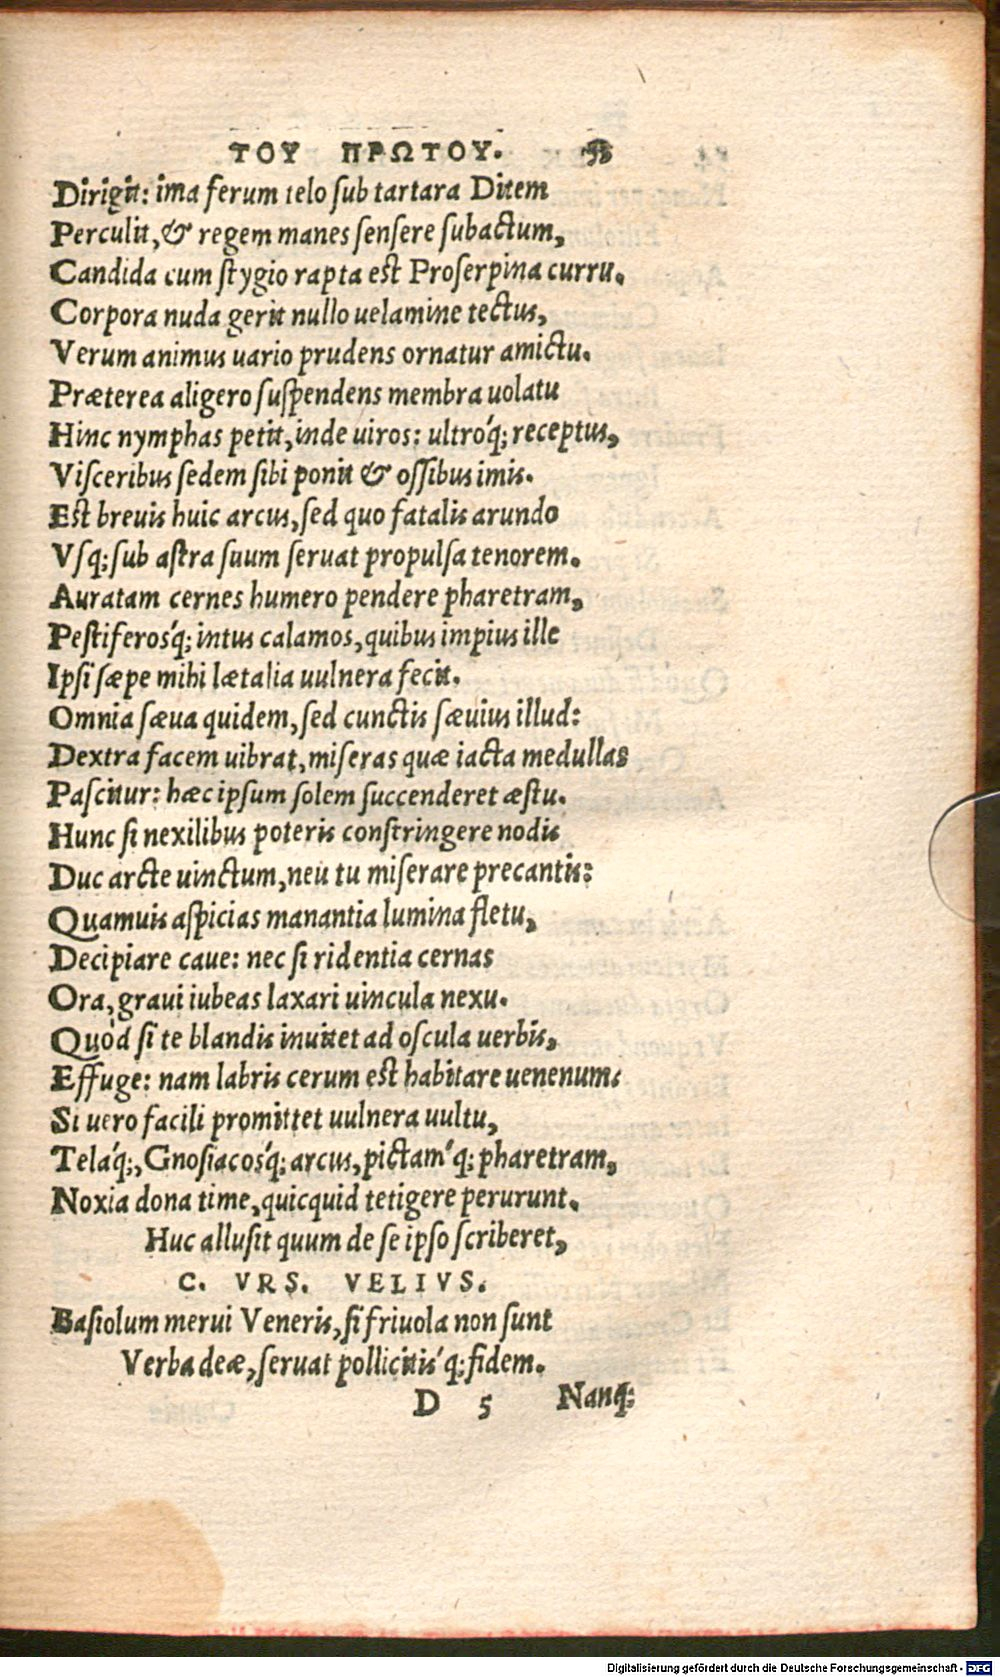 ΤΟΥ ΠΡΩΤΟΥ.
Dirigit: ima ferum telo ſub tartara Ditem
Perculit, & regem manes ſenſere ſubactum,
Candida cum ſtygio rapta eſt Proſerpina curru.
Corpora nuda gerit nullo uelamine tectus,
Verum animus uario prudens ornatur amictu.
Præterea aligero ſuſpendens membra uolatu
Hinc nymphas petit, inde uiros: ultróq; receptus,
Viſceribus ſedem ſibi ponit & oſſibus imis.
Eſt breuis huic arcus, ſed quo fatalis arundo
Vſq; ſub aſtra ſuum ſeruat propulſa tenorem.
Auratam cernes humero pendere pharetram,
Peſtiferosq́; intus calamos, quibus impius ille
Ipſi ſæpe mihi lætalia uulnera fecit.
Omnia ſæua quidem, ſed cunctis ſæuius illud:
Dextra facem uibrat, miſeras quæ iacta medullas
Paſcitur: hæc ipſum ſolem ſuccenderet æſtu.
Hunc ſi nexilibus poteris conſtringere nodis
Duc arcte uinctum, neu tu miſerare precantis:
Quamuis aſpicias manantia lumina fletu,
Decipiare caue: nec ſi ridentia cernas
Ora, graui iubeas laxari uincula nexu.
Quòd ſi te blandis inuitet ad oſcula uerbis,
Effuge: nam labris cerum eſt habitare uenenum:
Si uero facili promittet uulnera uultu,
Telaq́;, Gnoſiacosq́; arcus, pictam'q; pharetram,
Noxia dona time, quicquid tetigere perurunt.
Huc alluſit quum de ſe ipſo ſcriberet,
C. VRS. VELIVS.
Baſiolum merui Veneris, ſi friuola non ſunt
Verba deæ, ſeruat pollicitis'q; fidem.
D 5 Nanq;
Digitalisierung gefördert durch die Deutsche Forschungsgemeinschaft - DFG